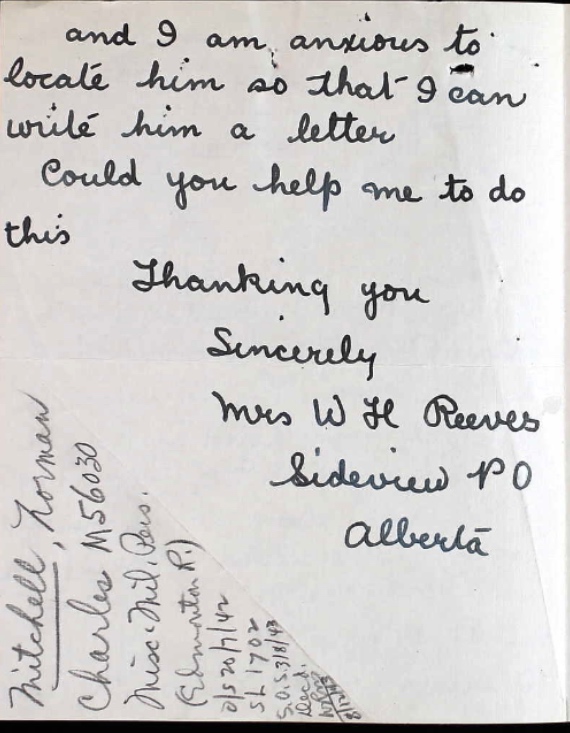 and I am anxious to
locate him so that I can
write him a letter
Could you help me to do
this
Thanking you
Sincerely
Mrs W H Reeves
Sideview P O
Alberta
Mitchell, Norman
Charles M56030
Misc. Mil. Pers.
(Edmonton R.)
o/s 20/7/42
SL 1702
S.O.S. 31/8/43
Decd.